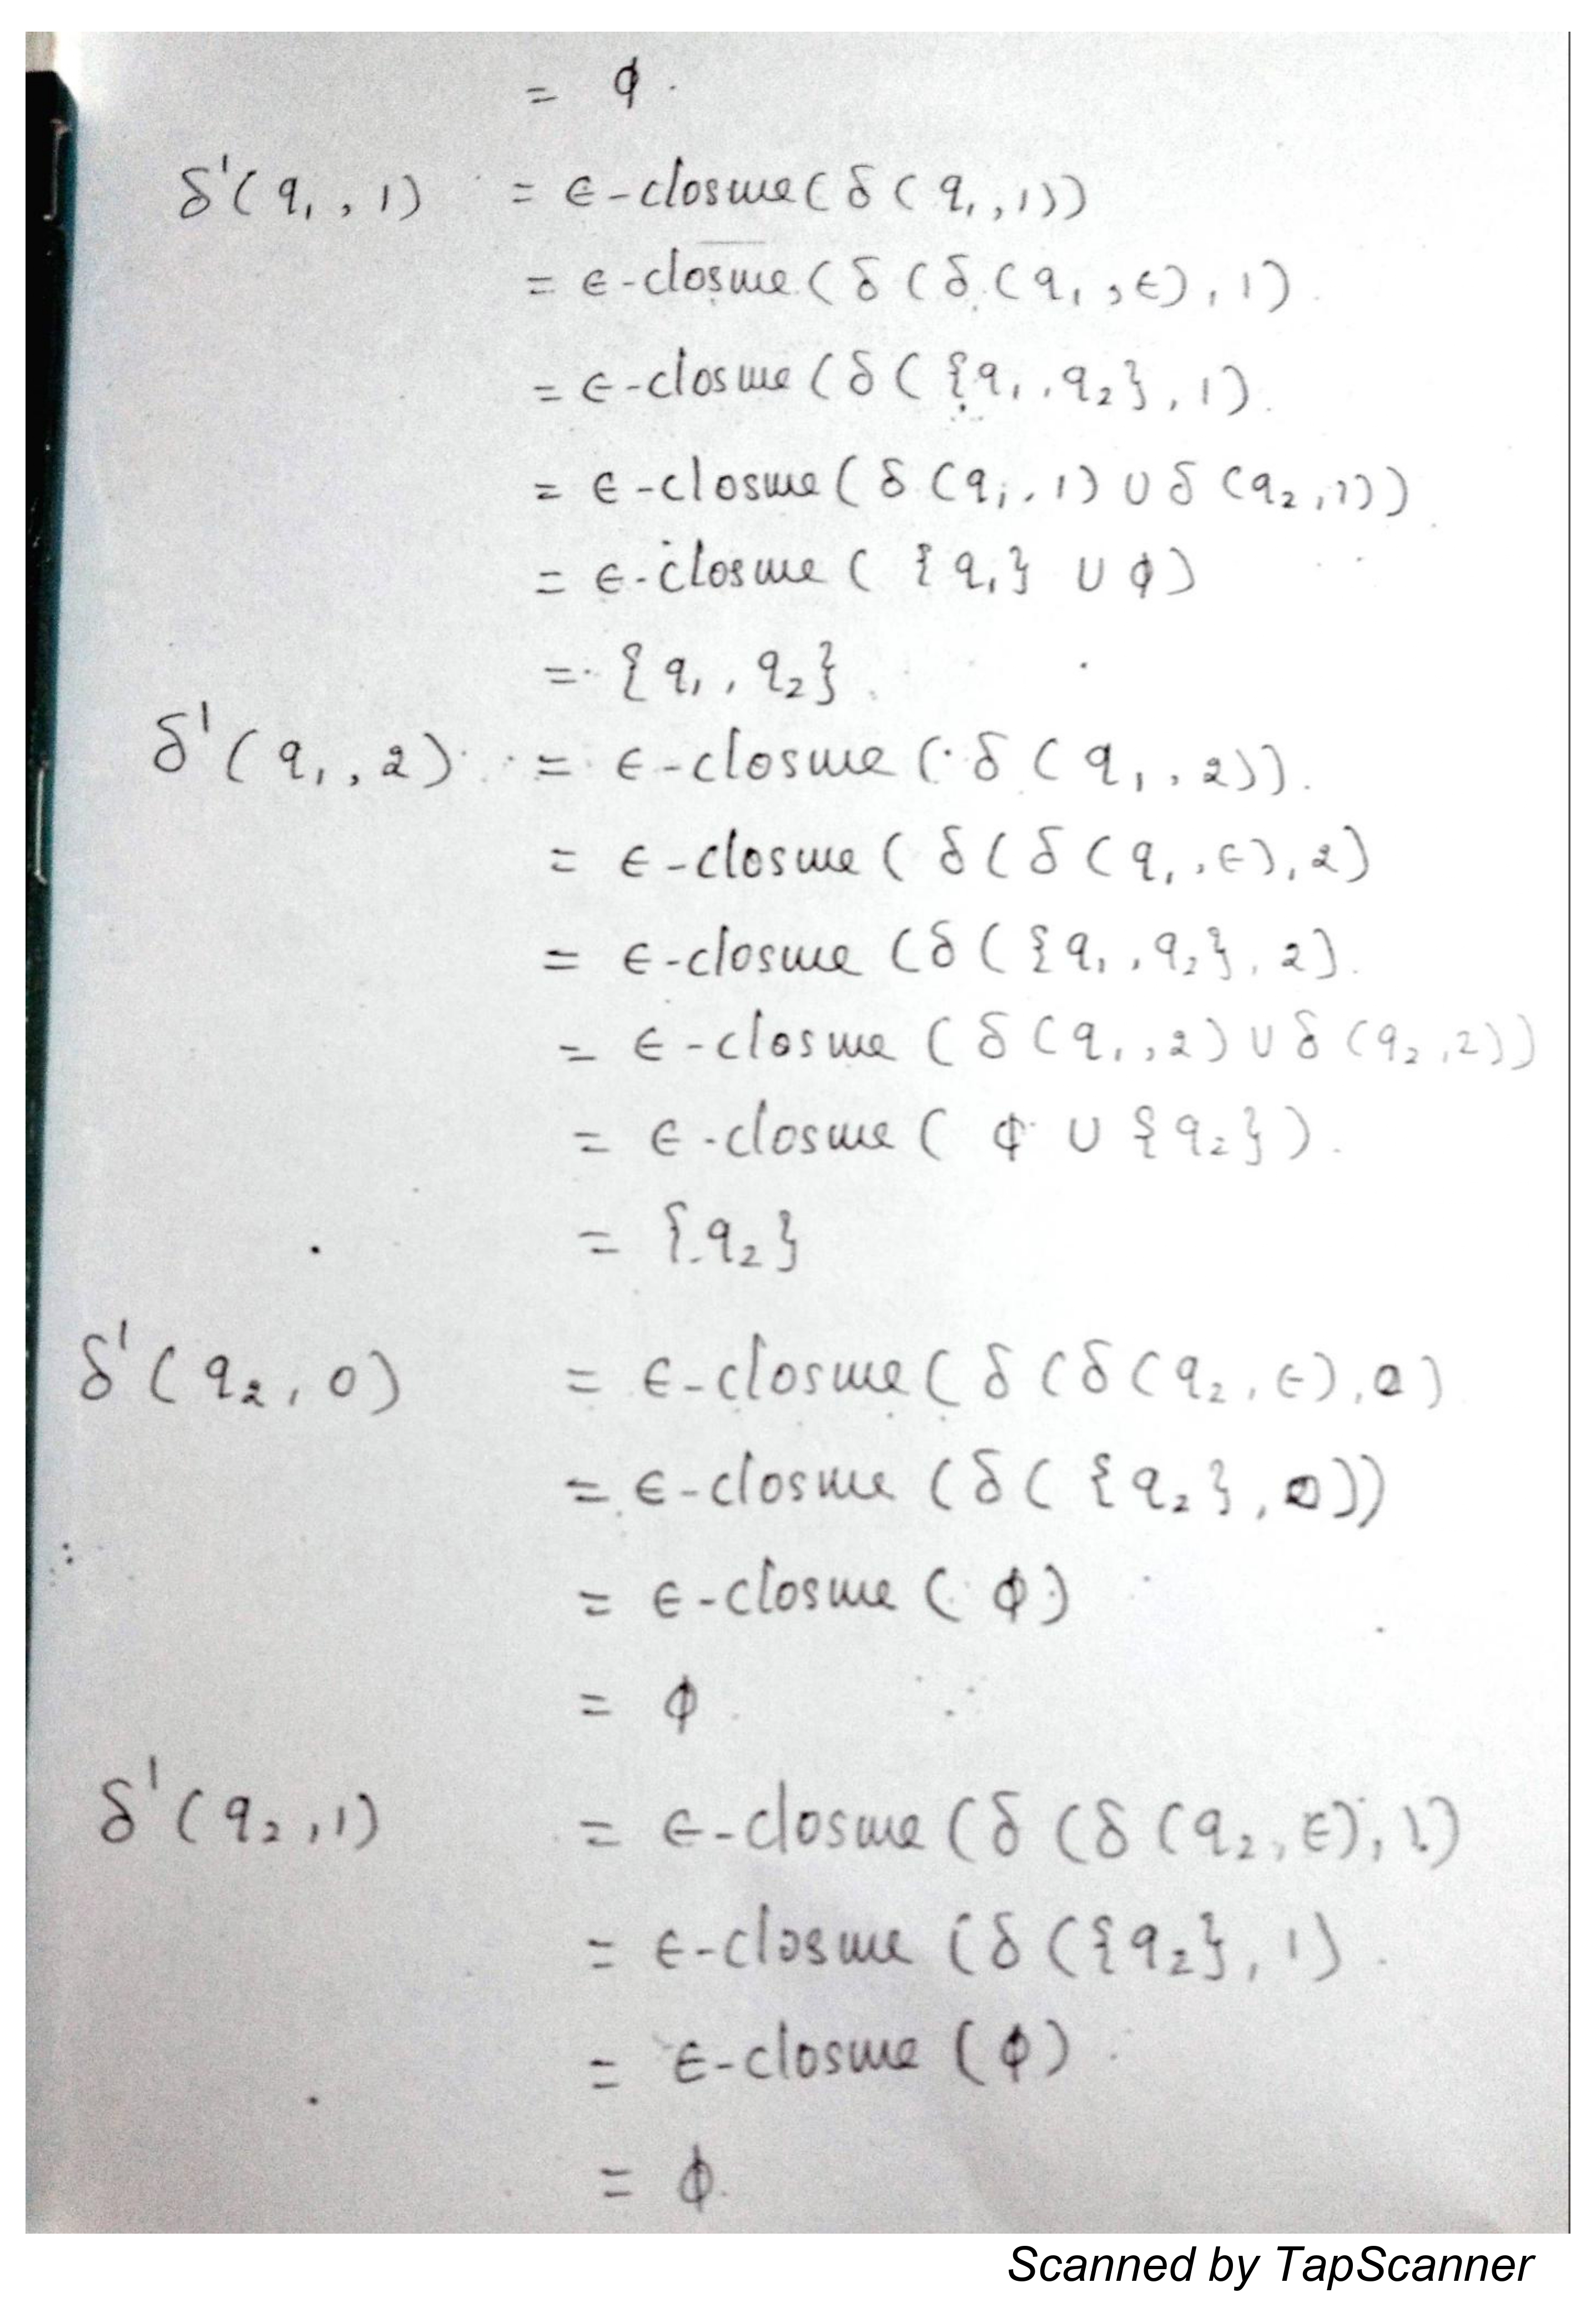 = ϕ.
δ'(q₁, 1) = ϵ-closure(δ(q₁,1))
= ϵ-closure(δ(δ(q₁,ϵ),1).
= ϵ-closure(δ({q₁,q₂},1).
= ϵ-closure(δ(q₁,1) ∪ δ(q₂,1))
= ϵ-closure({q₁} ∪ ϕ)
= {q₁,q₂}.
δ'(q₁,2) = ϵ-closure(δ(q₁,2)).
= ϵ-closure(δ(δ(q₁,ϵ),2)
= ϵ-closure(δ({q₁,q₂},2).
= ϵ-closure(δ(q₁,2) ∪ δ(q₂,2))
= ϵ-closure(ϕ ∪ {q₂}).
= {q₂}
δ'(q₂,0) = ϵ-closure(δ(δ(q₂,ϵ),0)
= ϵ-closure(δ({q₂},0))
= ϵ-closure(ϕ)
= ϕ.
δ'(q₂,1) = ϵ-closure(δ(δ(q₂,ϵ),1)
= ϵ-closure(δ({q₂},1).
= ϵ-closure(ϕ).
= ϕ.
Scanned by TapScanner